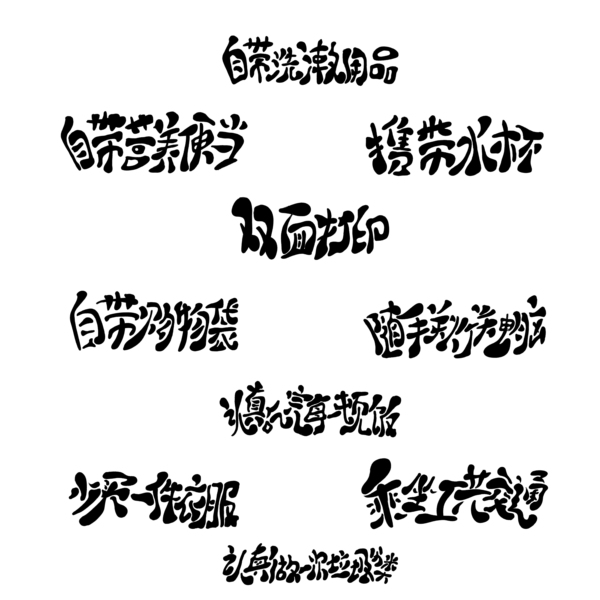 自带洗漱用品
自带营养便当
携带水杯
双面打印
自带购物袋
随手关闭电脑
认真吃完每一顿饭
少买一件衣服
乘坐公共交通
认真做一次垃圾分类